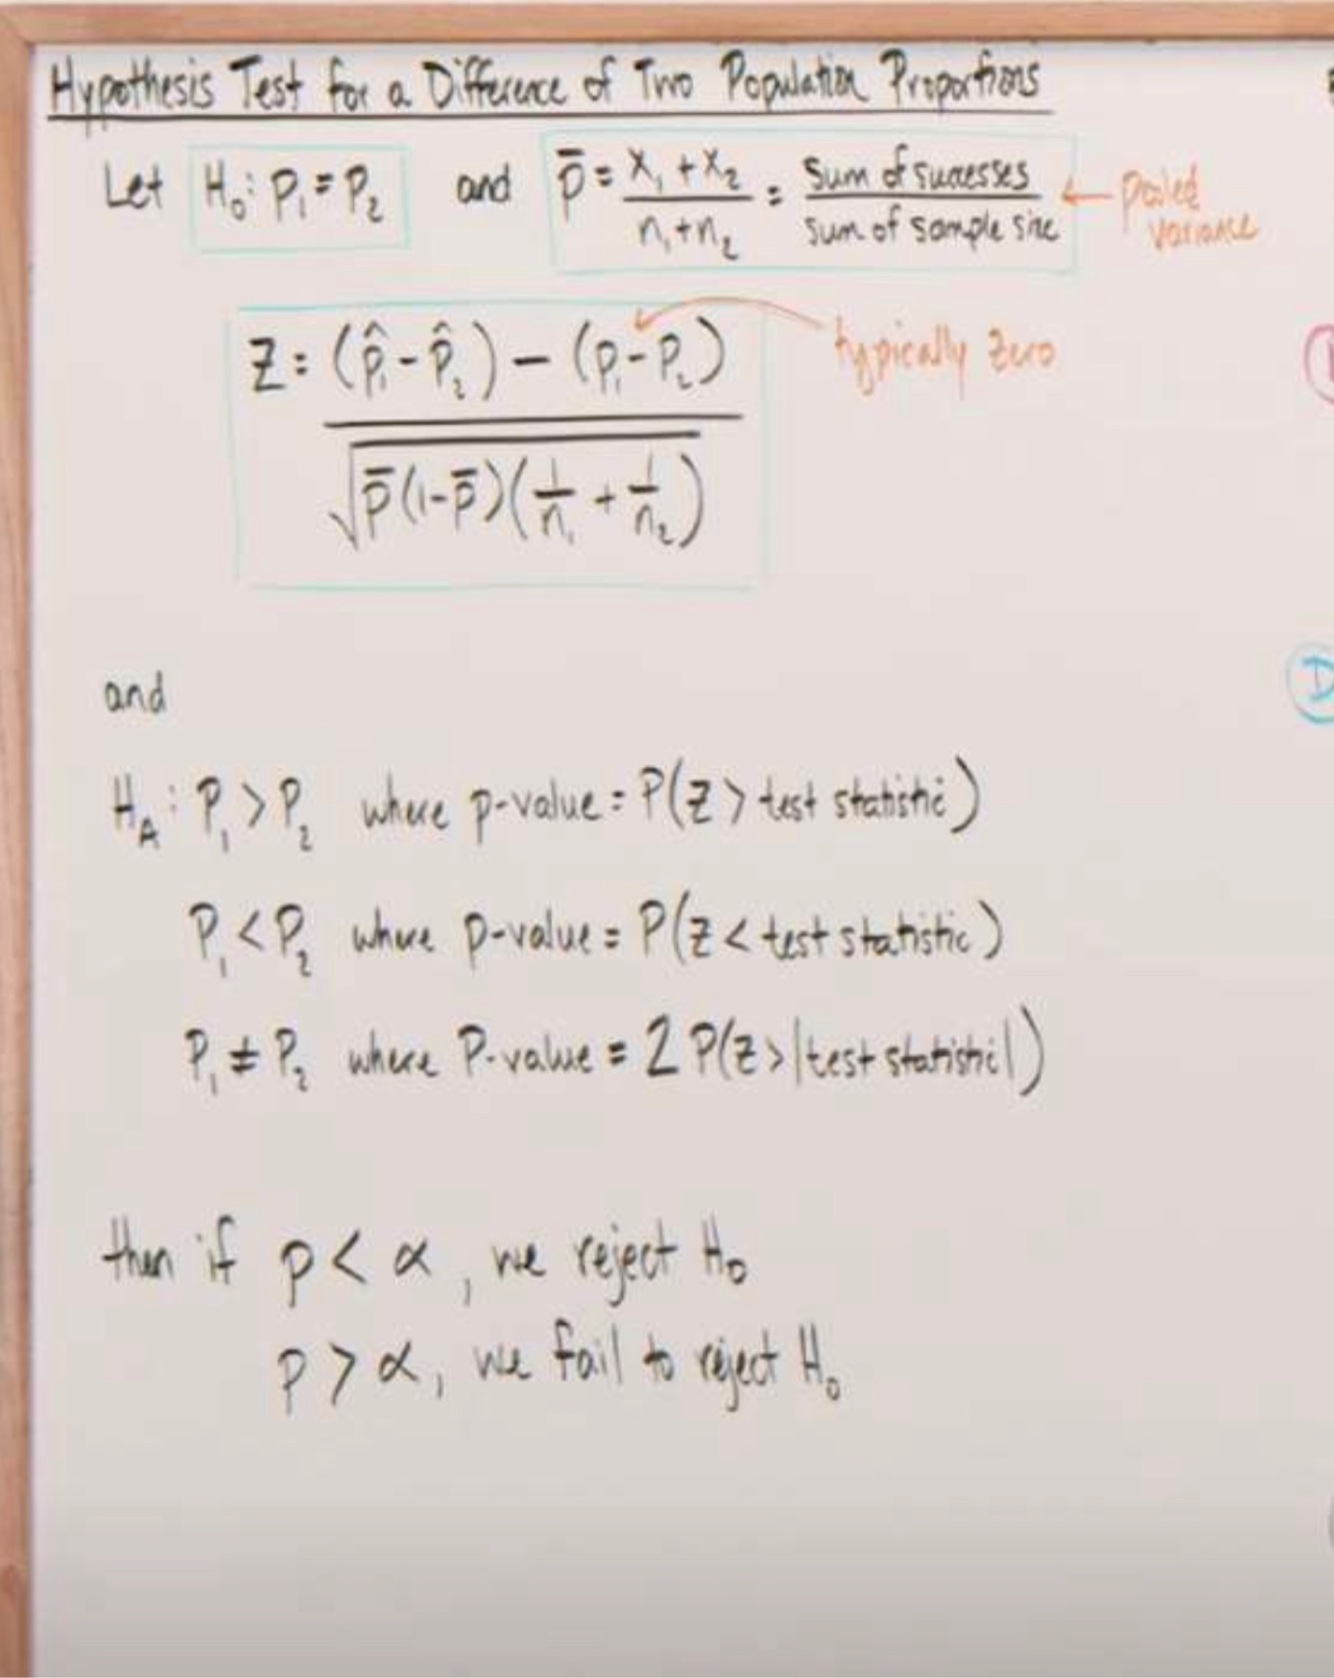 Hypothesis Test for a Difference of Two Population Proportions
Let H₀: p₁ = p₂ and p̄ = (x₁ + x₂)/(n₁ + n₂) = sum of successes/sum of sample size ← pooled variance
Z = ((p̂₁ - p̂₂) - (p₁ - p₂))/√(p̄(1-p̄)(1/n₁ + 1/n₂))
typically zero
and
H_A: P₁ > P₂ where p-value = P(Z > test statistic)
P₁ < P₂ where p-value = P(Z < test statistic)
P₁ ≠ P₂ where P-value = 2 P(Z > |test statistic|)
then if p < α, we reject H₀
p > α, we fail to reject H₀
D